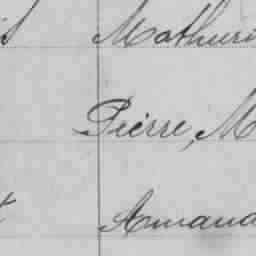 Mathuri
Pierre, M
Amand